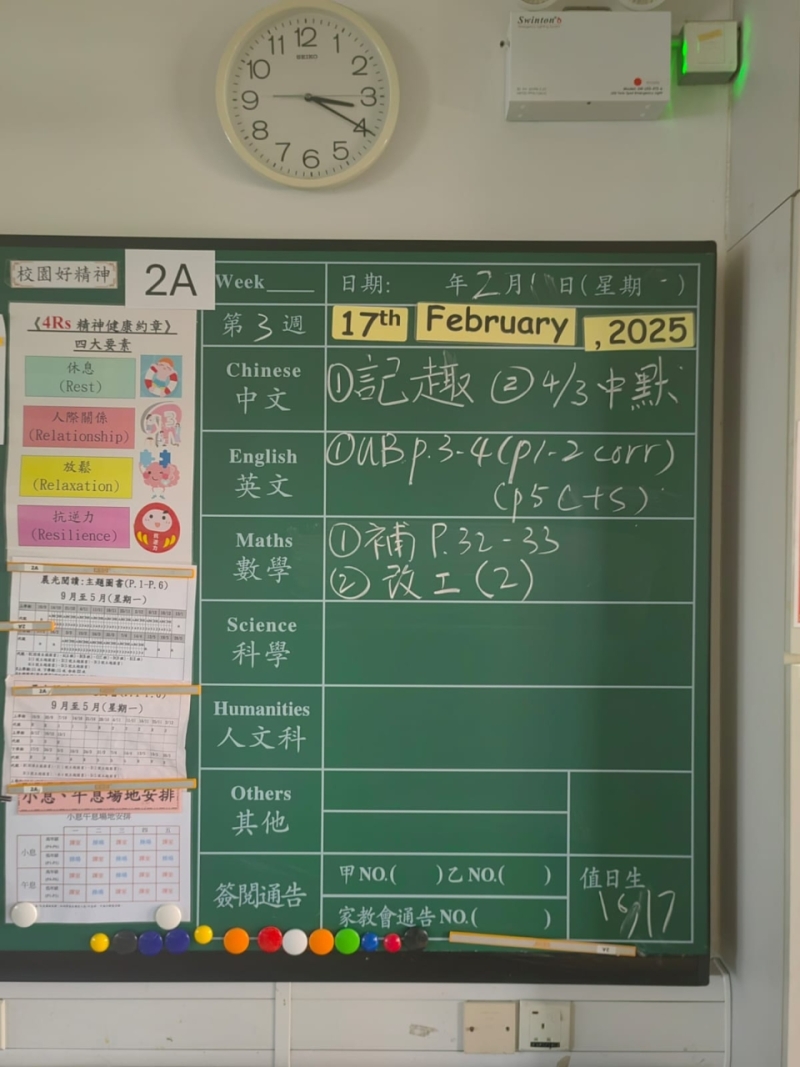 12
1
2
3
4
5
6
7
8
9
10
11
SEIKO
Swinton
校園好精神
2A
Week
日期: 年2月1 日(星期一)
第3週
17th February, 2025
《4Rs 精神健康約章》
四大要素
休息
(Rest)
人際關係
(Relationship)
放鬆
(Relaxation)
抗逆力
(Resilience)
Chinese
中文
①記趣 ②4/3中默
English
英文
①UB p.3-4(p1-2 corr)
(p5 C+S)
Maths
數學
①補 P.32-33
②改工(2)
Science
科學
Humanities
人文科
Others
其他
簽閱通告
甲NO.( )乙NO.( )
家教會通告NO.( )
值日生
16,17
2A
晨光閱讀:主題圖書(P.1-P.6)
9月至5月(星期一)
9月至5月(星期一)
小息、午息場地安排
小息午息場地安排
一 二 三 四 五
小息
午息